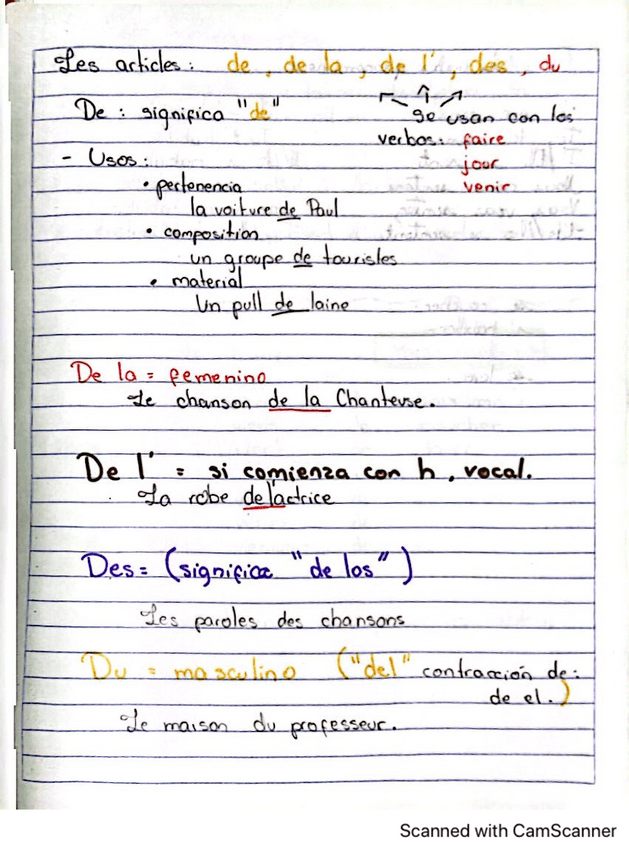 Les articles: de, de la, de l', des, du
De: significa "de"
Se usan con los
verbos: faire
- Usos:
jour
• pertenencia
venir
la voiture de Paul
• composition
un groupe de touristes
• material
Un pull de laine
De la = femenino
Le chanson de la Chanteuse.
De l' = si comienza con h, vocal.
La robe de l'actrice
Des = (significa "de los")
Les paroles des chansons
Du = masculino ("del" contracción de:
de el.)
Le maison du professeur.
Scanned with CamScanner